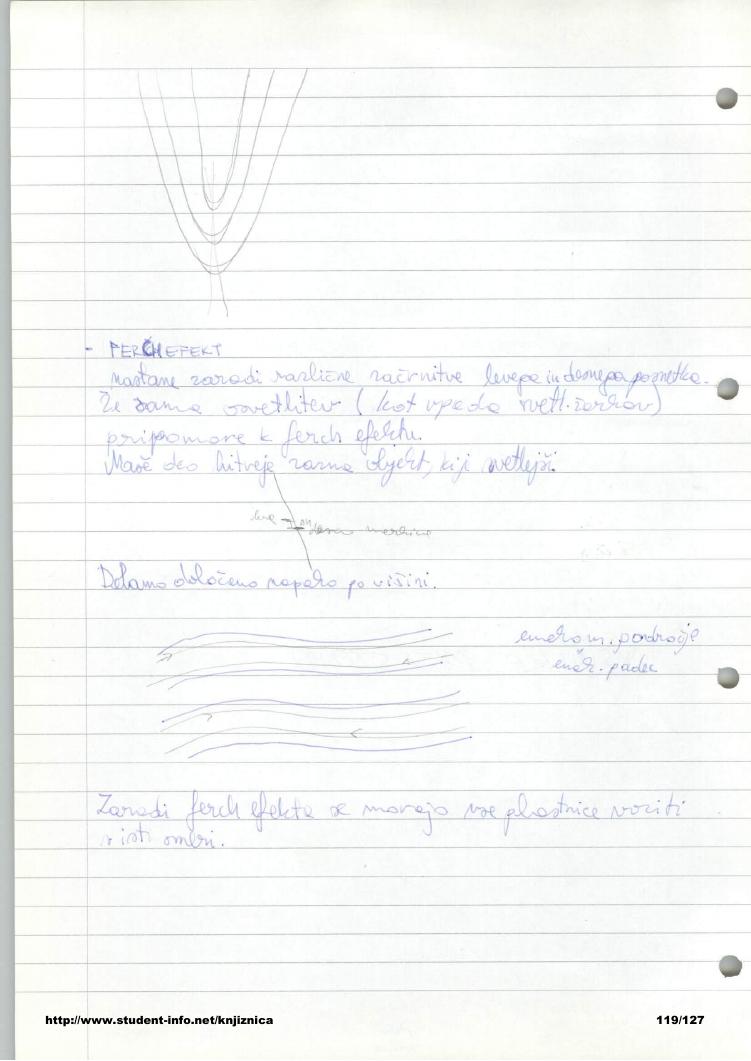 - FERCH EFEKT
nastane zaradi različne začrnitve levega in desnega posnetka.
Že sama osvetlitev ( kot vpada svetl. žarkov)
pripomore k ferch efektu.
Naše oko hitreje zazna objekt, ki je svetlejši.
leva desna markica
Delamo določeno napako po višini.
enakom. področje
enak. padec
Zaradi ferch efekta se morajo vse plastnice voziti
v isti smeri.
http://www.student-info.net/knjiznica
119/127